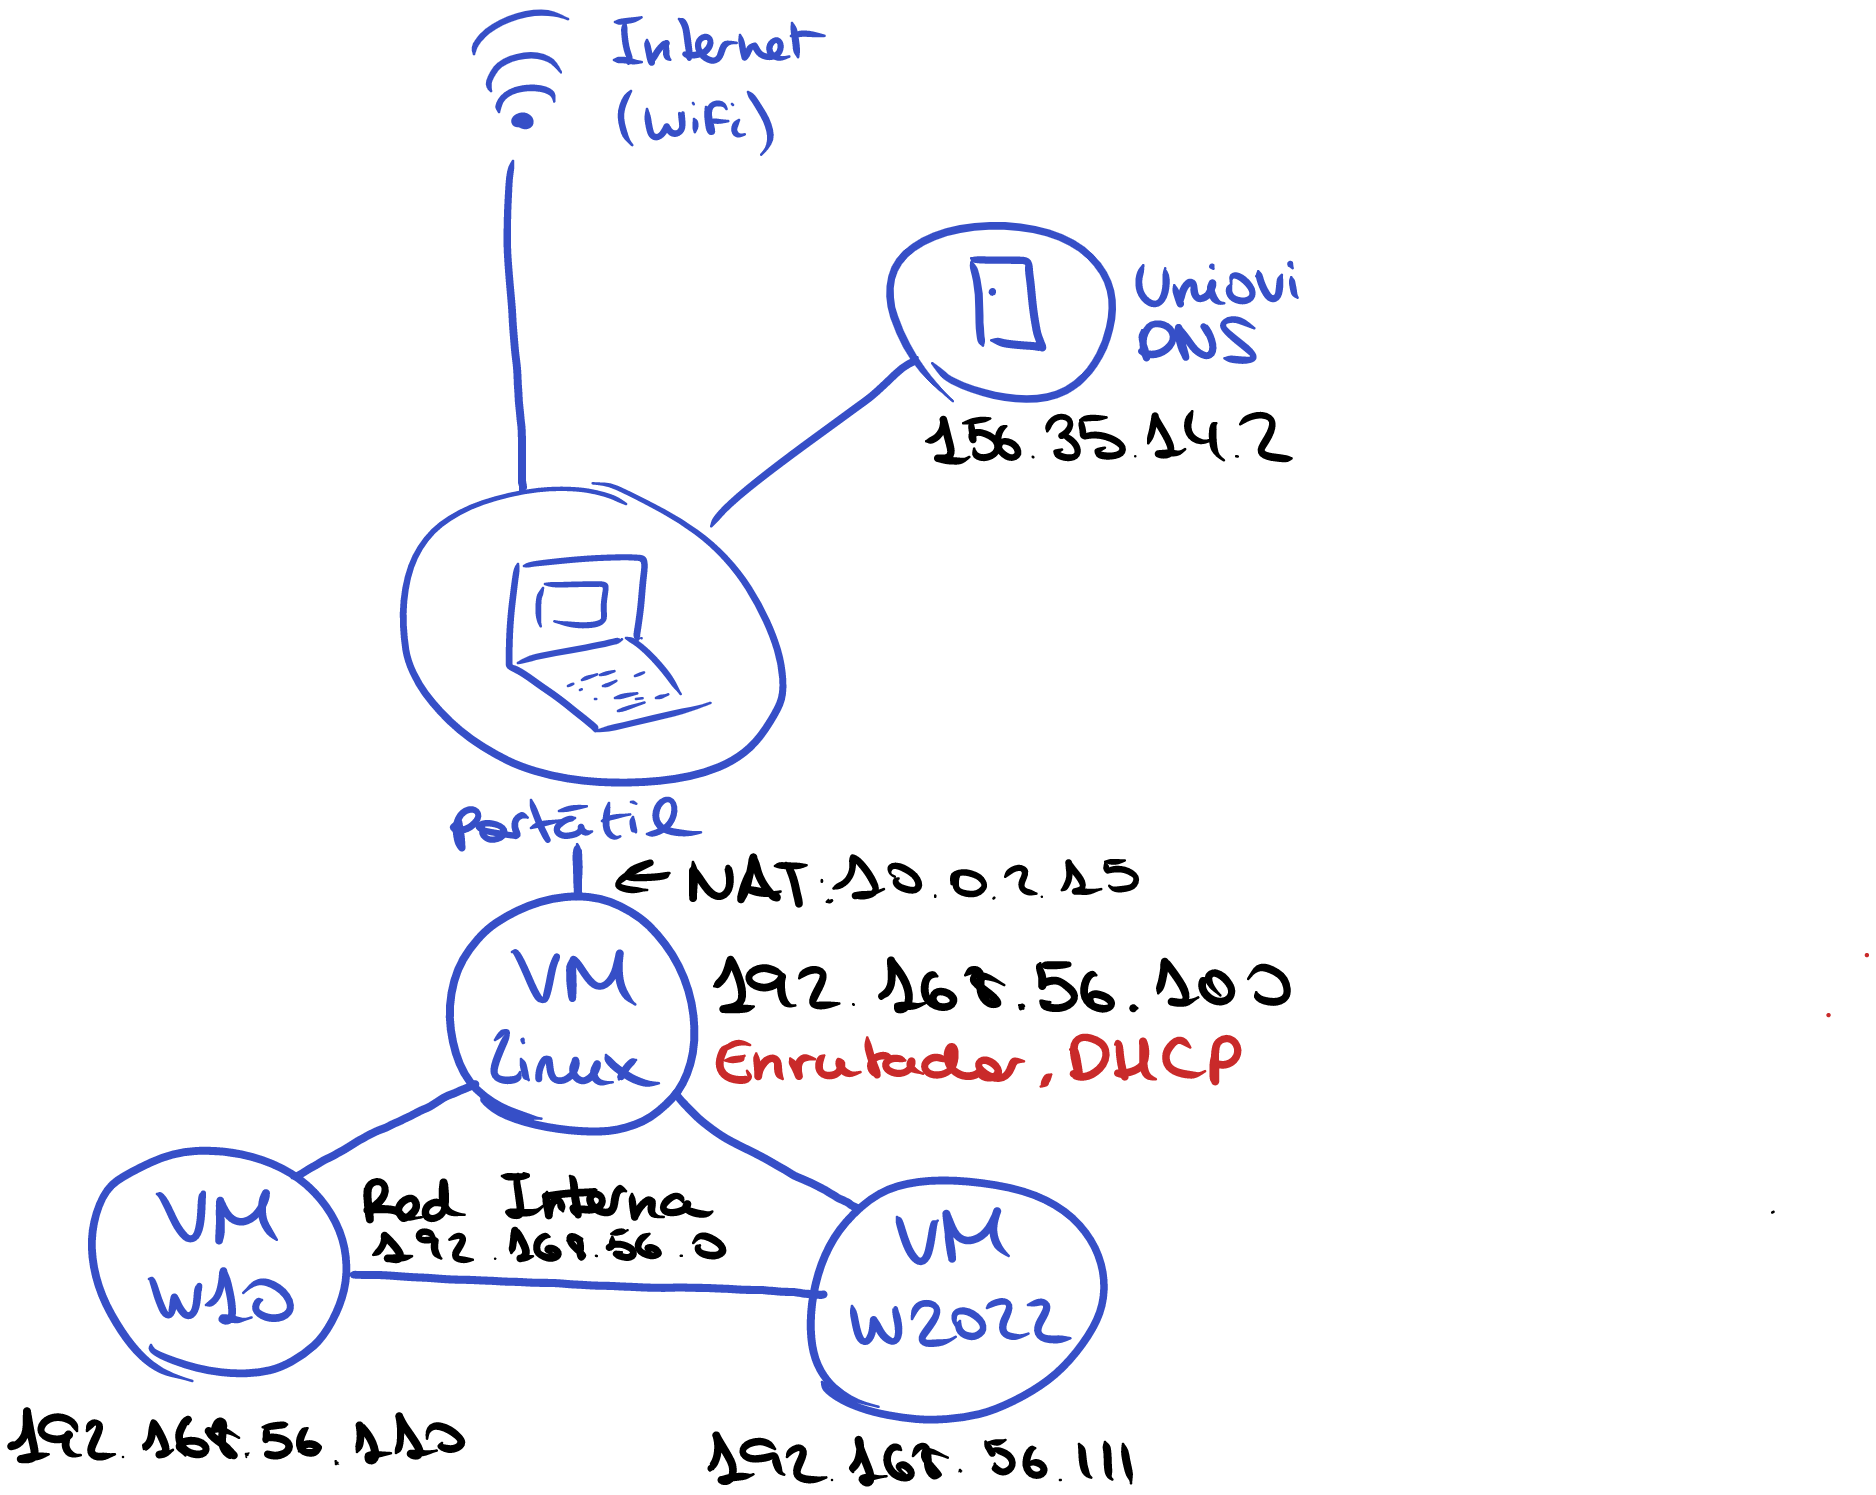 Internet
(WiFi)
Uniovi
DNS
156.35.14.2
Portátil
← NAT: 10.0.2.15
VM
Linux
192.168.56.100
Enrutador, DHCP
VM
W10
Red Interna
192.168.56.0
VM
W2022
192.168.56.110
192.168.56.111